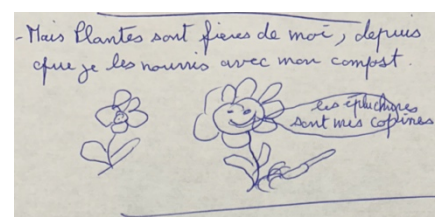 - Mais Plantes sont fieres de moi, depuis
que je les nourris avec mon compost.
les épluchures
sont mes copines